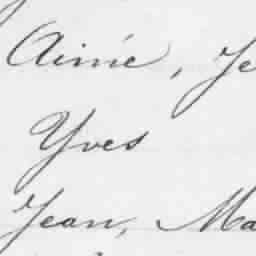 Aimé, Je
Yves
Jean, Ma